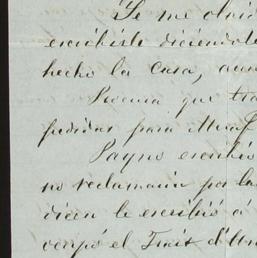 Se me olvid
escribirle diciendole
hecho la Casa, aun
Procura que tra
pedidas para
Payno escribió
no reclamaria por la
dicen le escribió á
ocupó el Trait d'Un